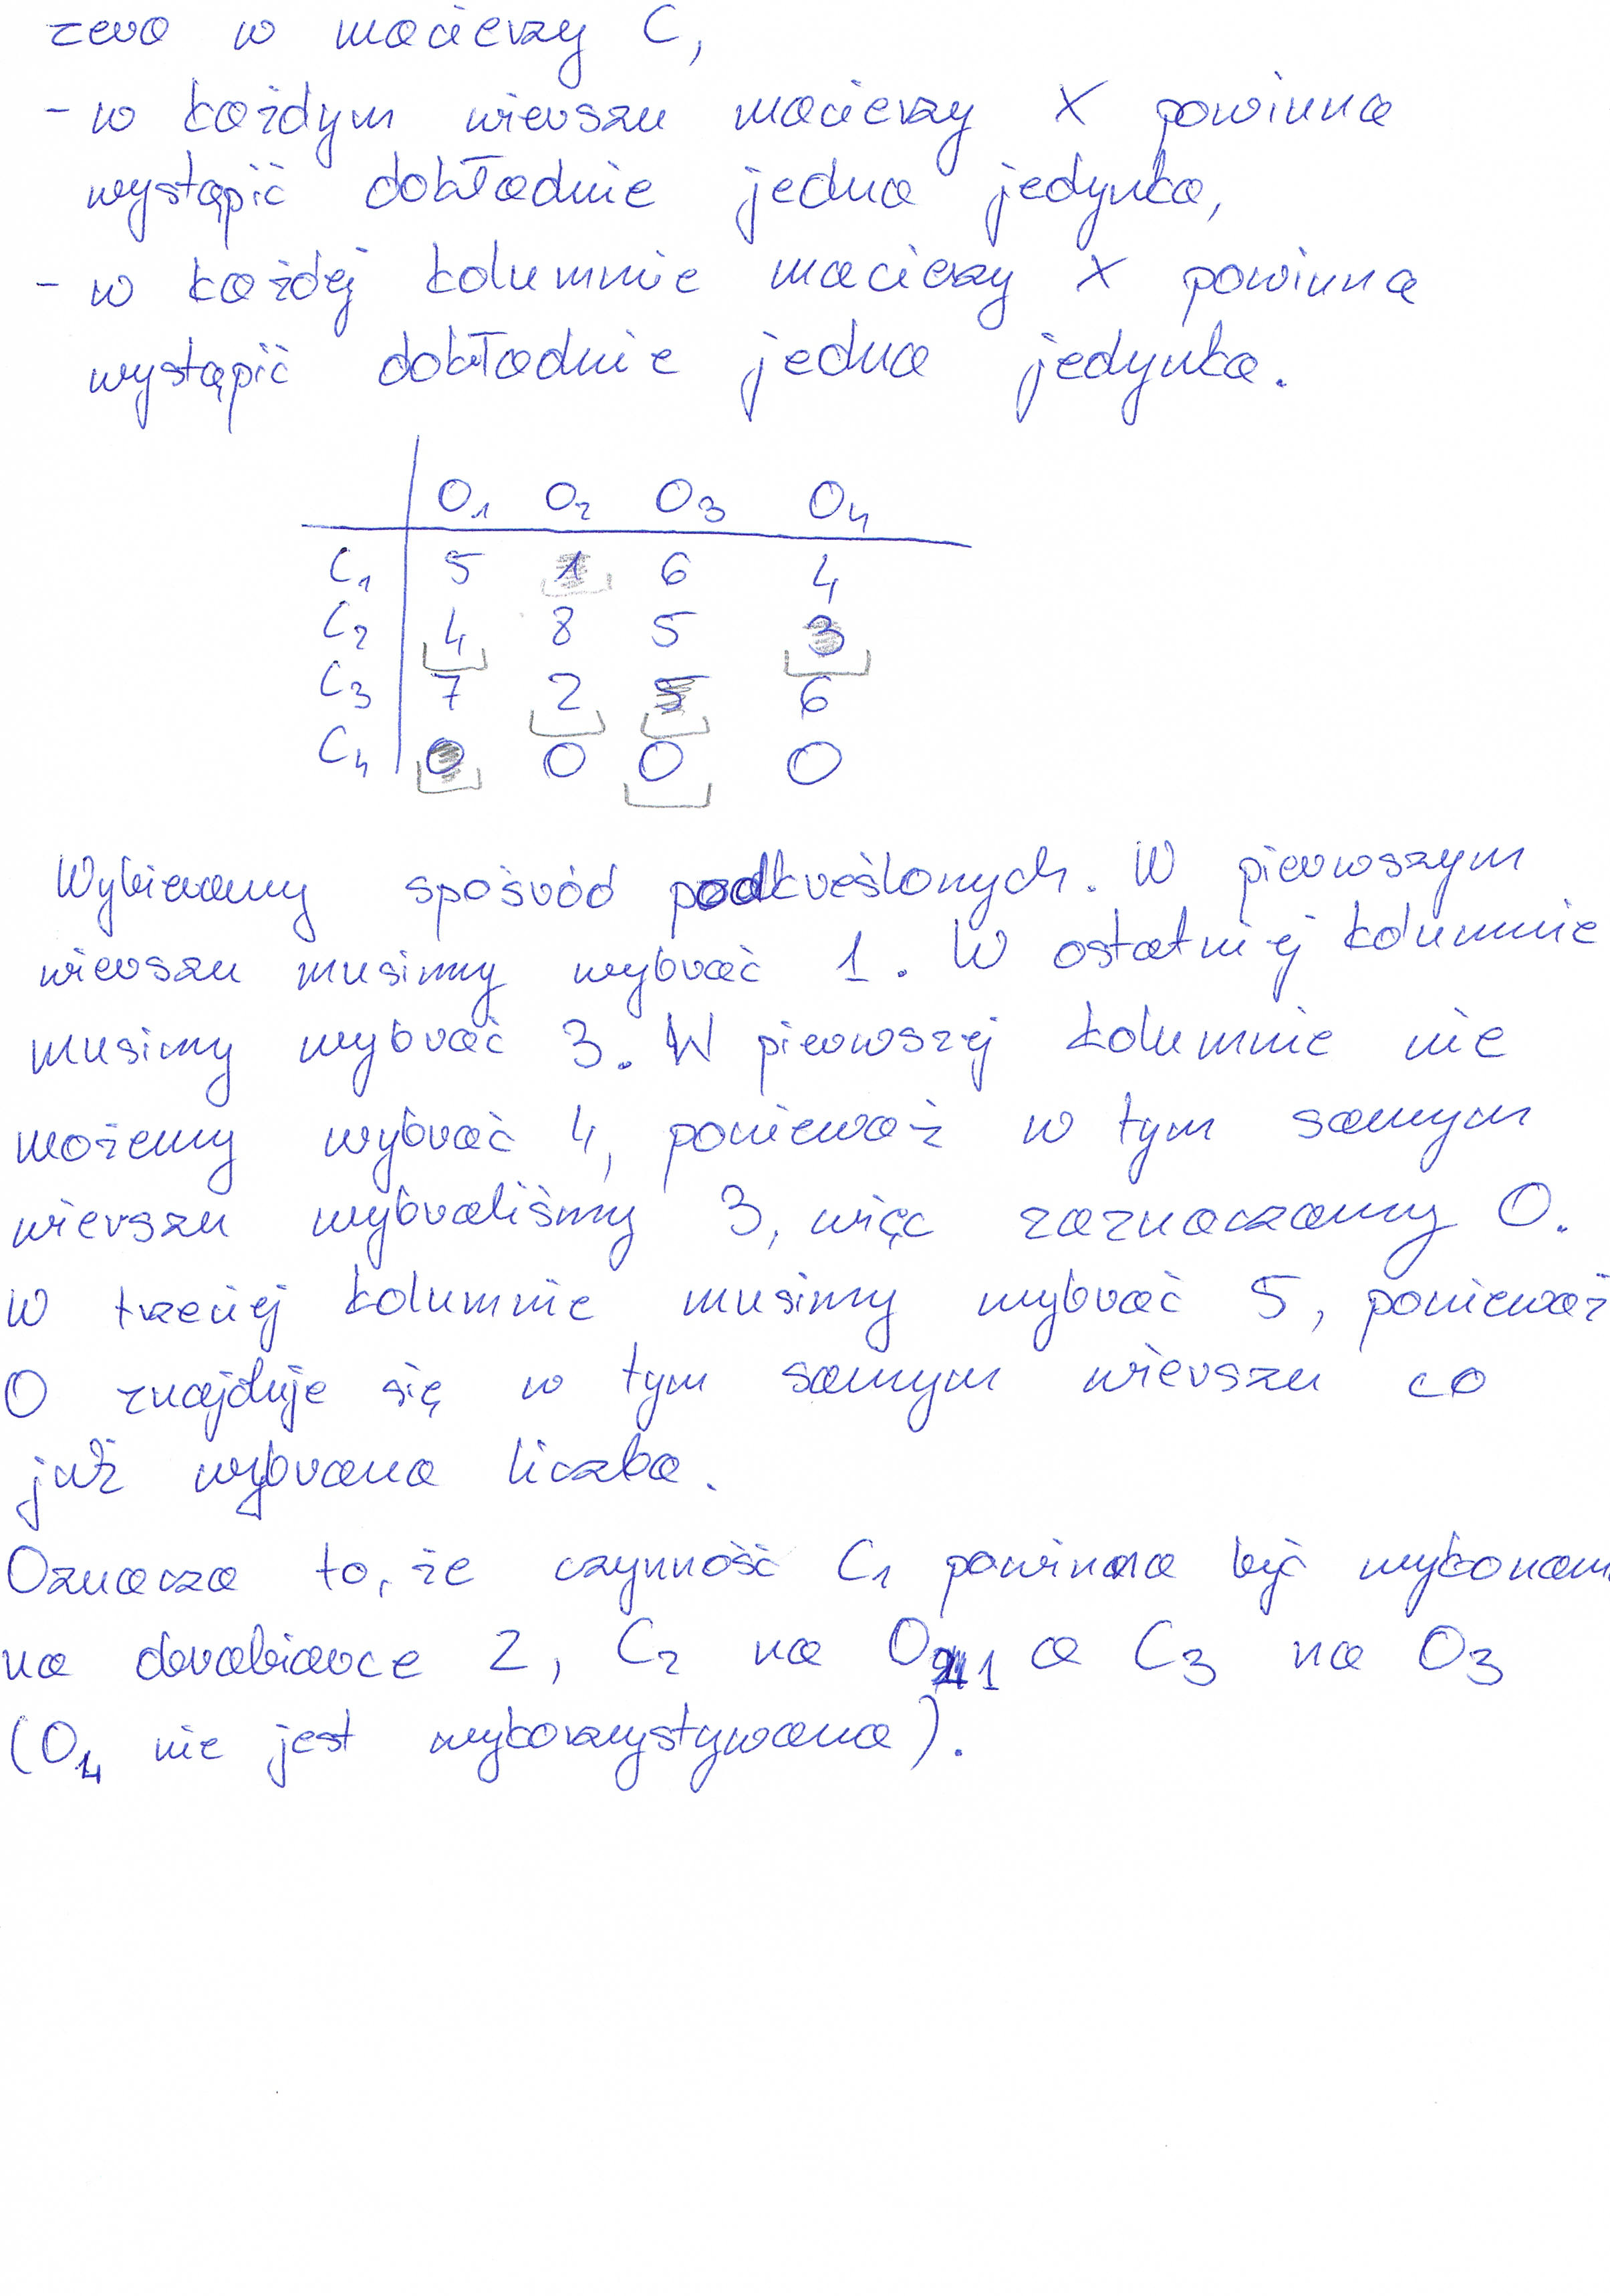 zera w macierzy C,
- w każdym wierszu macierzy X powinna
wystąpić dokładnie jedna jedynka,
- w każdej kolumnie macierzy X powinna
wystąpić dokładnie jedna jedynka.
O₁ O₂ O₃ O₄
C₁ 5 1 6 4
C₂ 4 8 5 3
C₃ 7 2 5 6
C₄ 0 0 0 0
Wybieramy spośród podkreślonych. W pierwszym
wierszu musimy wybrać 1. W ostatniej kolumnie
musimy wybrać 3. W pierwszej kolumnie nie
możemy wybrać 4, ponieważ w tym samym
wierszu wybraliśmy 3, więc zaznaczamy 0.
W trzeciej kolumnie musimy wybrać 5, ponieważ
0 znajduje się w tym samym wierszu co
już wybrana liczba.
Oznacza to, że czynność C₁ powinna być wykonam
na obrabiarce 2, C₂ na O₁ a C₃ na O₃
(O₄ nie jest wykorzystywana).